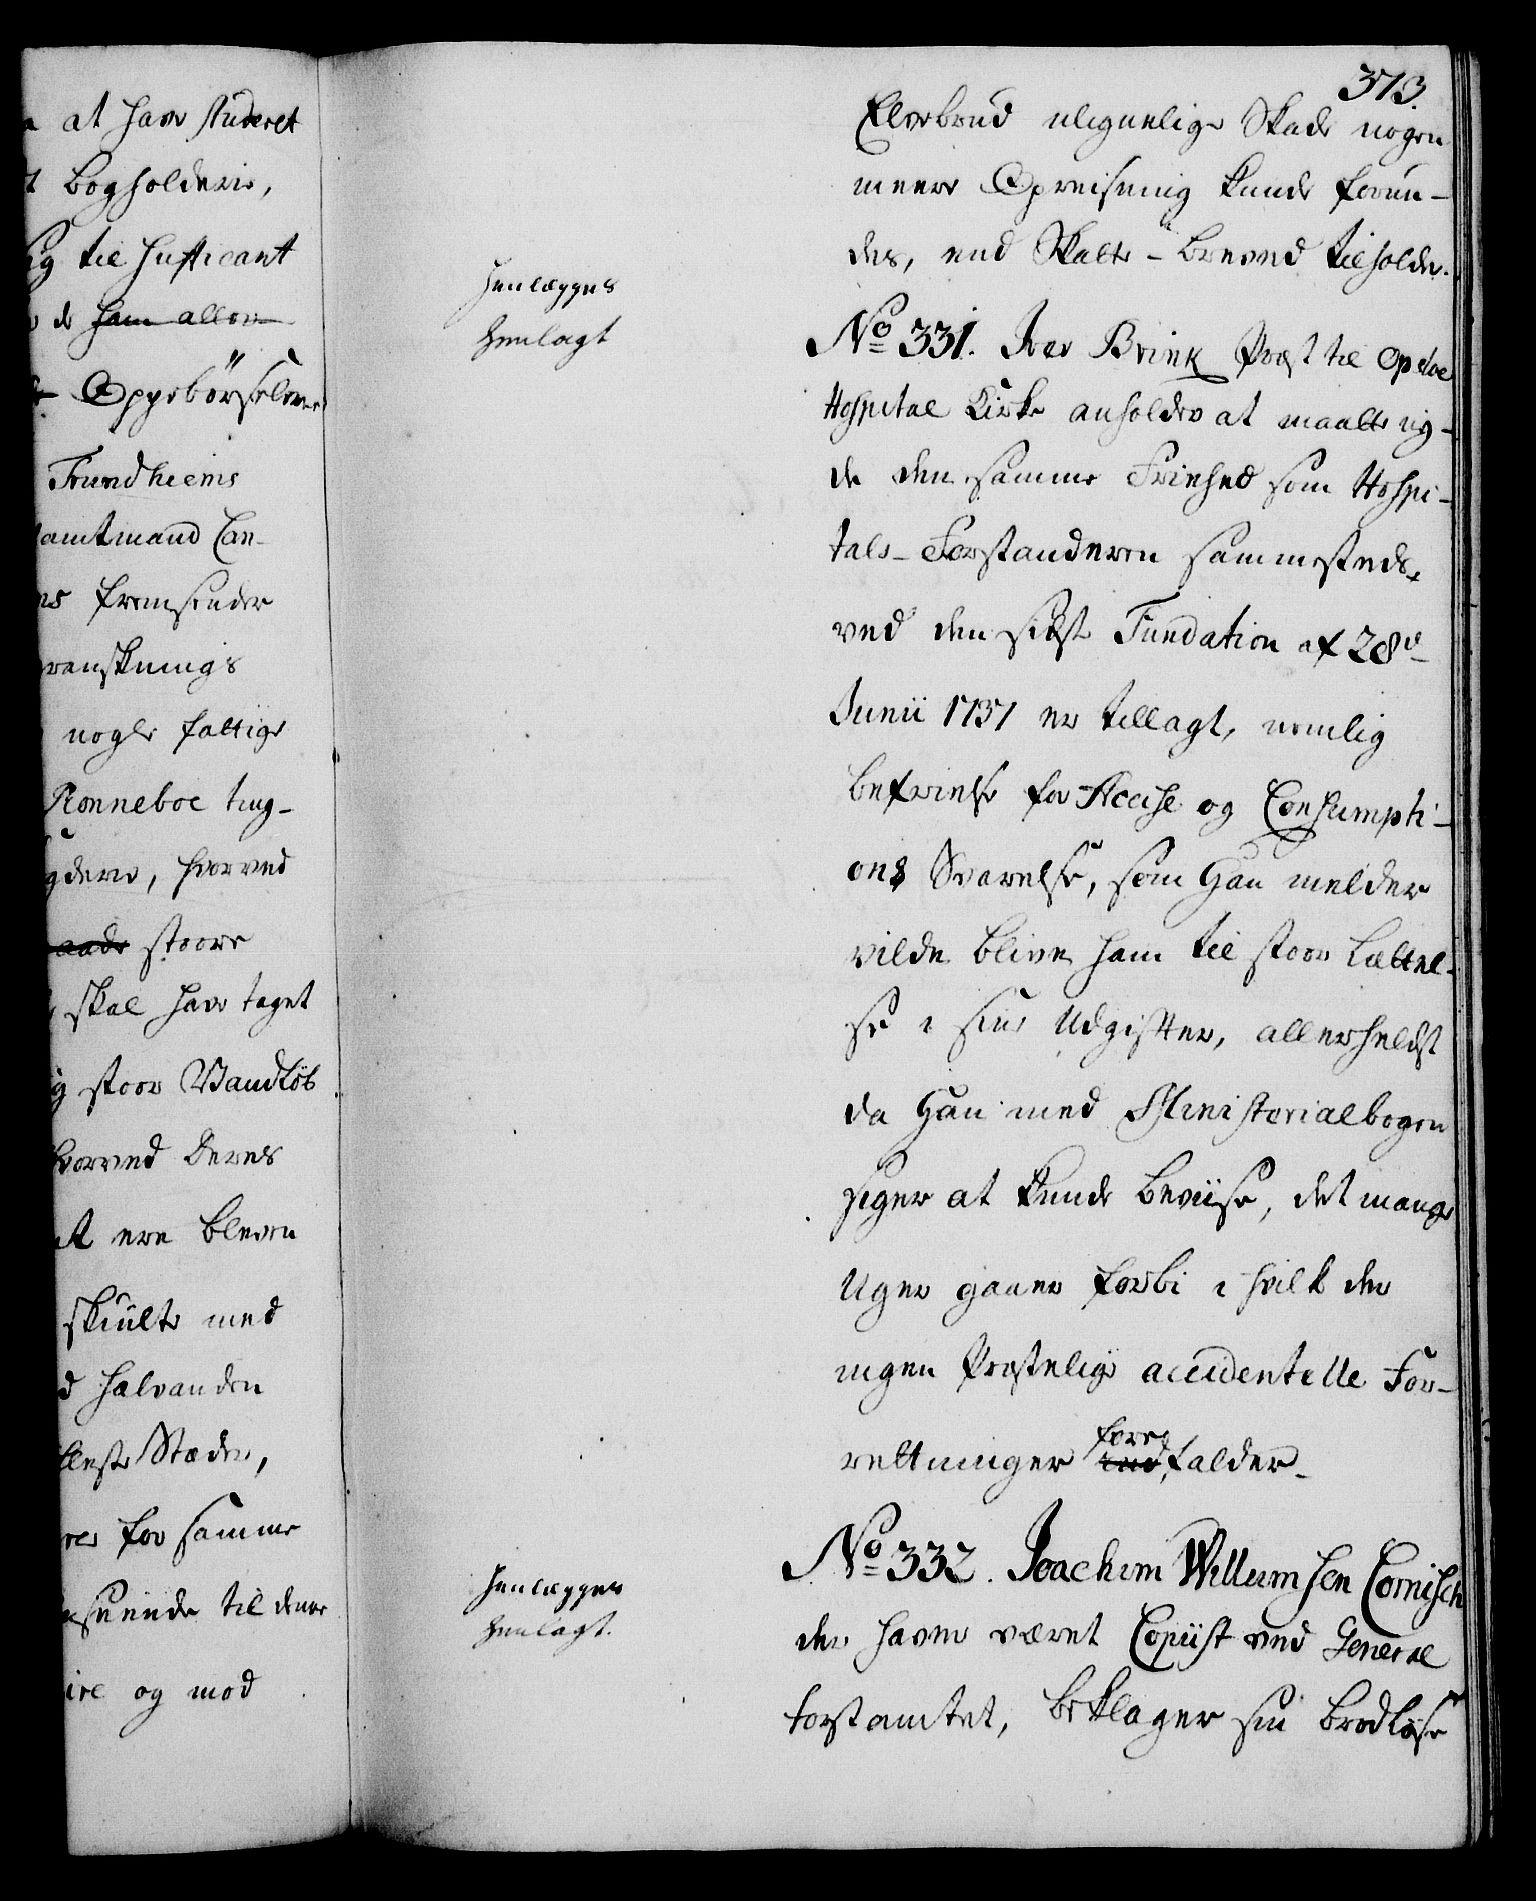 at have studeret
Bogholderie,
sig til sufficant
de ham aller
Oppebörseler
Trundhiems
amtmand Can-
fremsender
nogle fattige
Rønneboe ting-
hvorved
stoore
skal have taget
stoor Vandlöb
hvorved Deres
ere bleven
skiulte med
halvanden
fleste Stæder,
for samme
til denne
og mod
373.
Elvebrud ulignelige Skade nogen
meere Opreisning kunde forun-
des, end Skatte-Brevet tilholder.
Henlægges
henlagt
No 331. Iver Brink Præst til Opdoe
Hospital Kirke anholder at maatte nÿ-
de den samme Friehed som Hospi-
tals-Forstanderen sammesteds,
ved den sidste Fundation af 28de
Junii 1737 er tillagt, nemlig
befrielse for Accise og Consumpti-
ons Svarelse, som Han melder
vilde blive ham til stoor Lættel-
se i sine Udgifter, allerhelst
da Han med Ministerialbogen
siger at kunde beviise, det mange
Uger gaaer forbi i hvilke der
ingen Præstelige accidentelle For-
rettninger ind fore falder.
Henlægges
henlagt.
No 332. Joachim Willumsen Cornisch
der haver været Copiist ved General
forstamtet, beklager sin brødløse